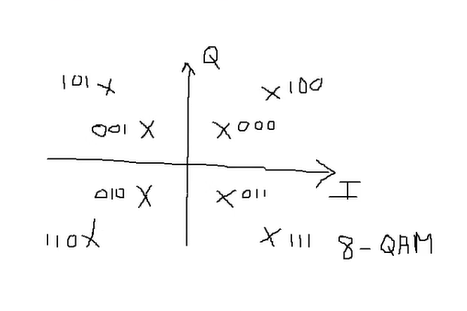 Q
101 X X 100
001 X X 000
010 X X 011
I
110 X X 111
8-QAM